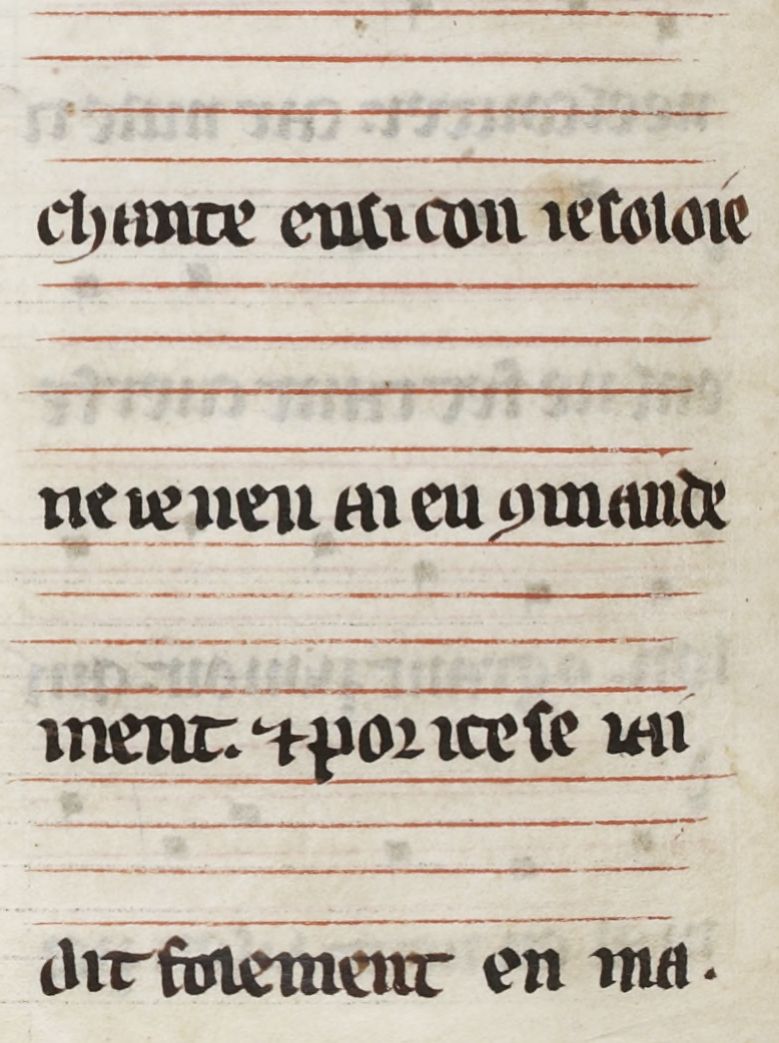 chante ensi con ie soloie
ne ie nen ai eu ꝯmande
ment. ⁊ por ice se iai
dit folement en ma.